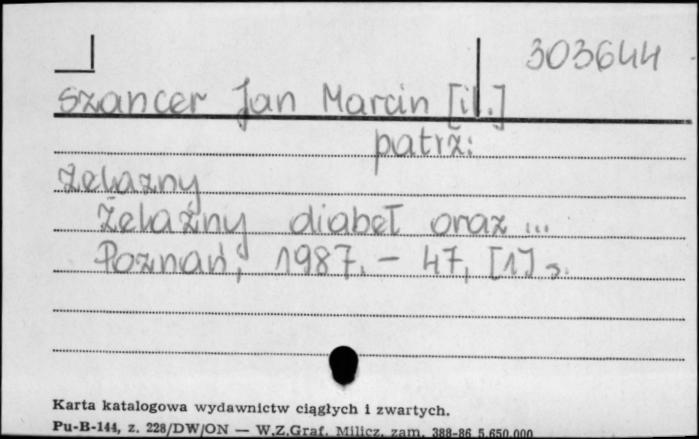 303644
Szancer Jan Marcin [il.]
patrz:
Żelazny
Żelazny diabeł oraz ...
Poznań, 1987. - 47, [1] s.
Karta katalogowa wydawnictw ciągłych i zwartych.
Pu-B-144, z. 228/DW/ON — W.Z.Graf. Milicz, zam. 388-86 5.650.000